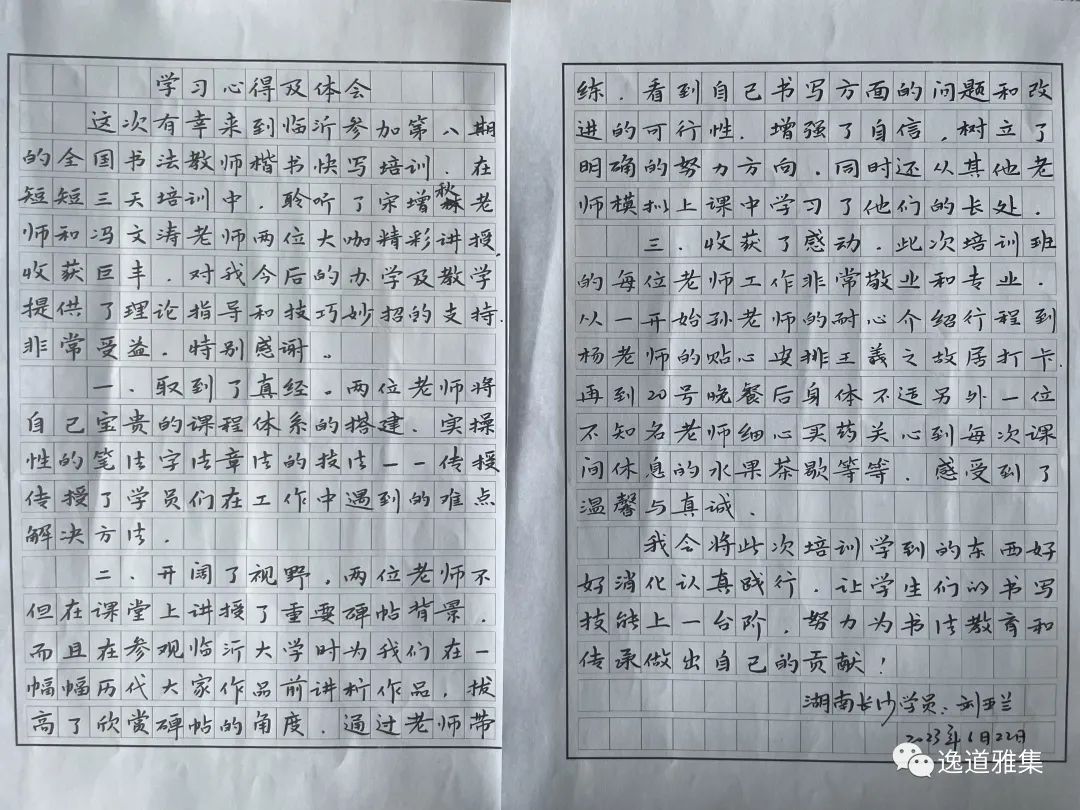 学习心得及体会
这次有幸来到临沂参加第八期
的全国书法教师楷书快写培训.在
短短三天培训中.聆听了宋增秋老
师和冯文涛老师两位大咖精彩讲授,
收获巨丰.对我今后的办学及教学
提供了理论指导和技巧妙招的支持.
非常受益.特别感谢。
一.取到了真经。两位老师将
自己宝贵的课程体系的搭建.实操
性的笔法字法章法的技法——传授
传授了学员们在工作中遇到的难点
解决方法.
二.开阔了视野,两位老师不
但在课堂上讲授了重要碑帖背景.
而且在参观临沂大学时为我们在一
幅幅历代大家作品前讲析作品,拔
高了欣赏碑帖的角度.通过老师带
练.看到自己书写方面的问题和改
进的可行性.增强了自信,树立了
明确的努力方向.同时还从其他老
师模拟上课中学习了他们的长处.
三.收获了感动.此次培训班
的每位老师工作非常敬业和专业.
从一开始孙老师的耐心介绍行程到
杨老师的贴心安排王羲之故居打卡.
再到20号晚餐后身体不适另外一位
不知名老师细心买药关心到每次课
间休息的水果茶歇等等.感受到了
温馨与真诚.
我会将此次培训学到的东西好
好消化认真践行.让学生们的书写
技能上一台阶.努力为书法教育和
传承做出自己的贡献!
湖南长沙学员:刘亚兰
2023年6月22日
逸道雅集